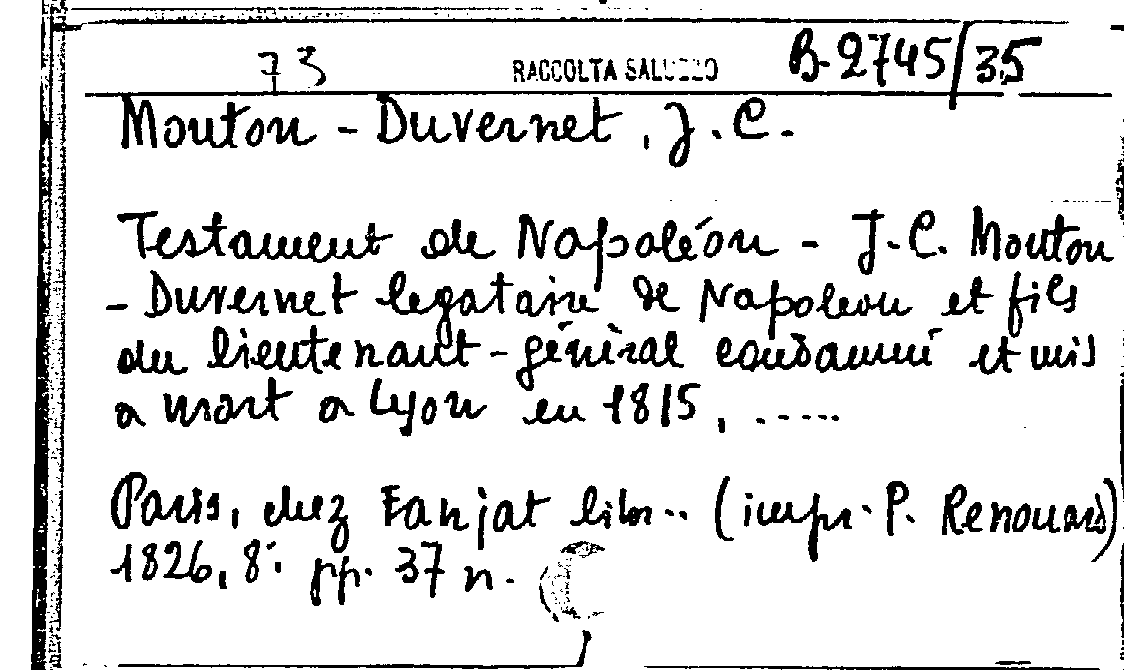 73 RACCOLTA SALUZZO B-2745/35
Mouton - Duvernet, J. C.
Testament de Napoléon - J.C. Mouton
- Duvernet legataire de Napoleon et fils
du lieutenant-général condamné et mis
a mort a Lyon en 1815, .....
Paris, chez Fanjat libr.. (impr. P. Renouard)
1826, 8°: pp. 37 n.